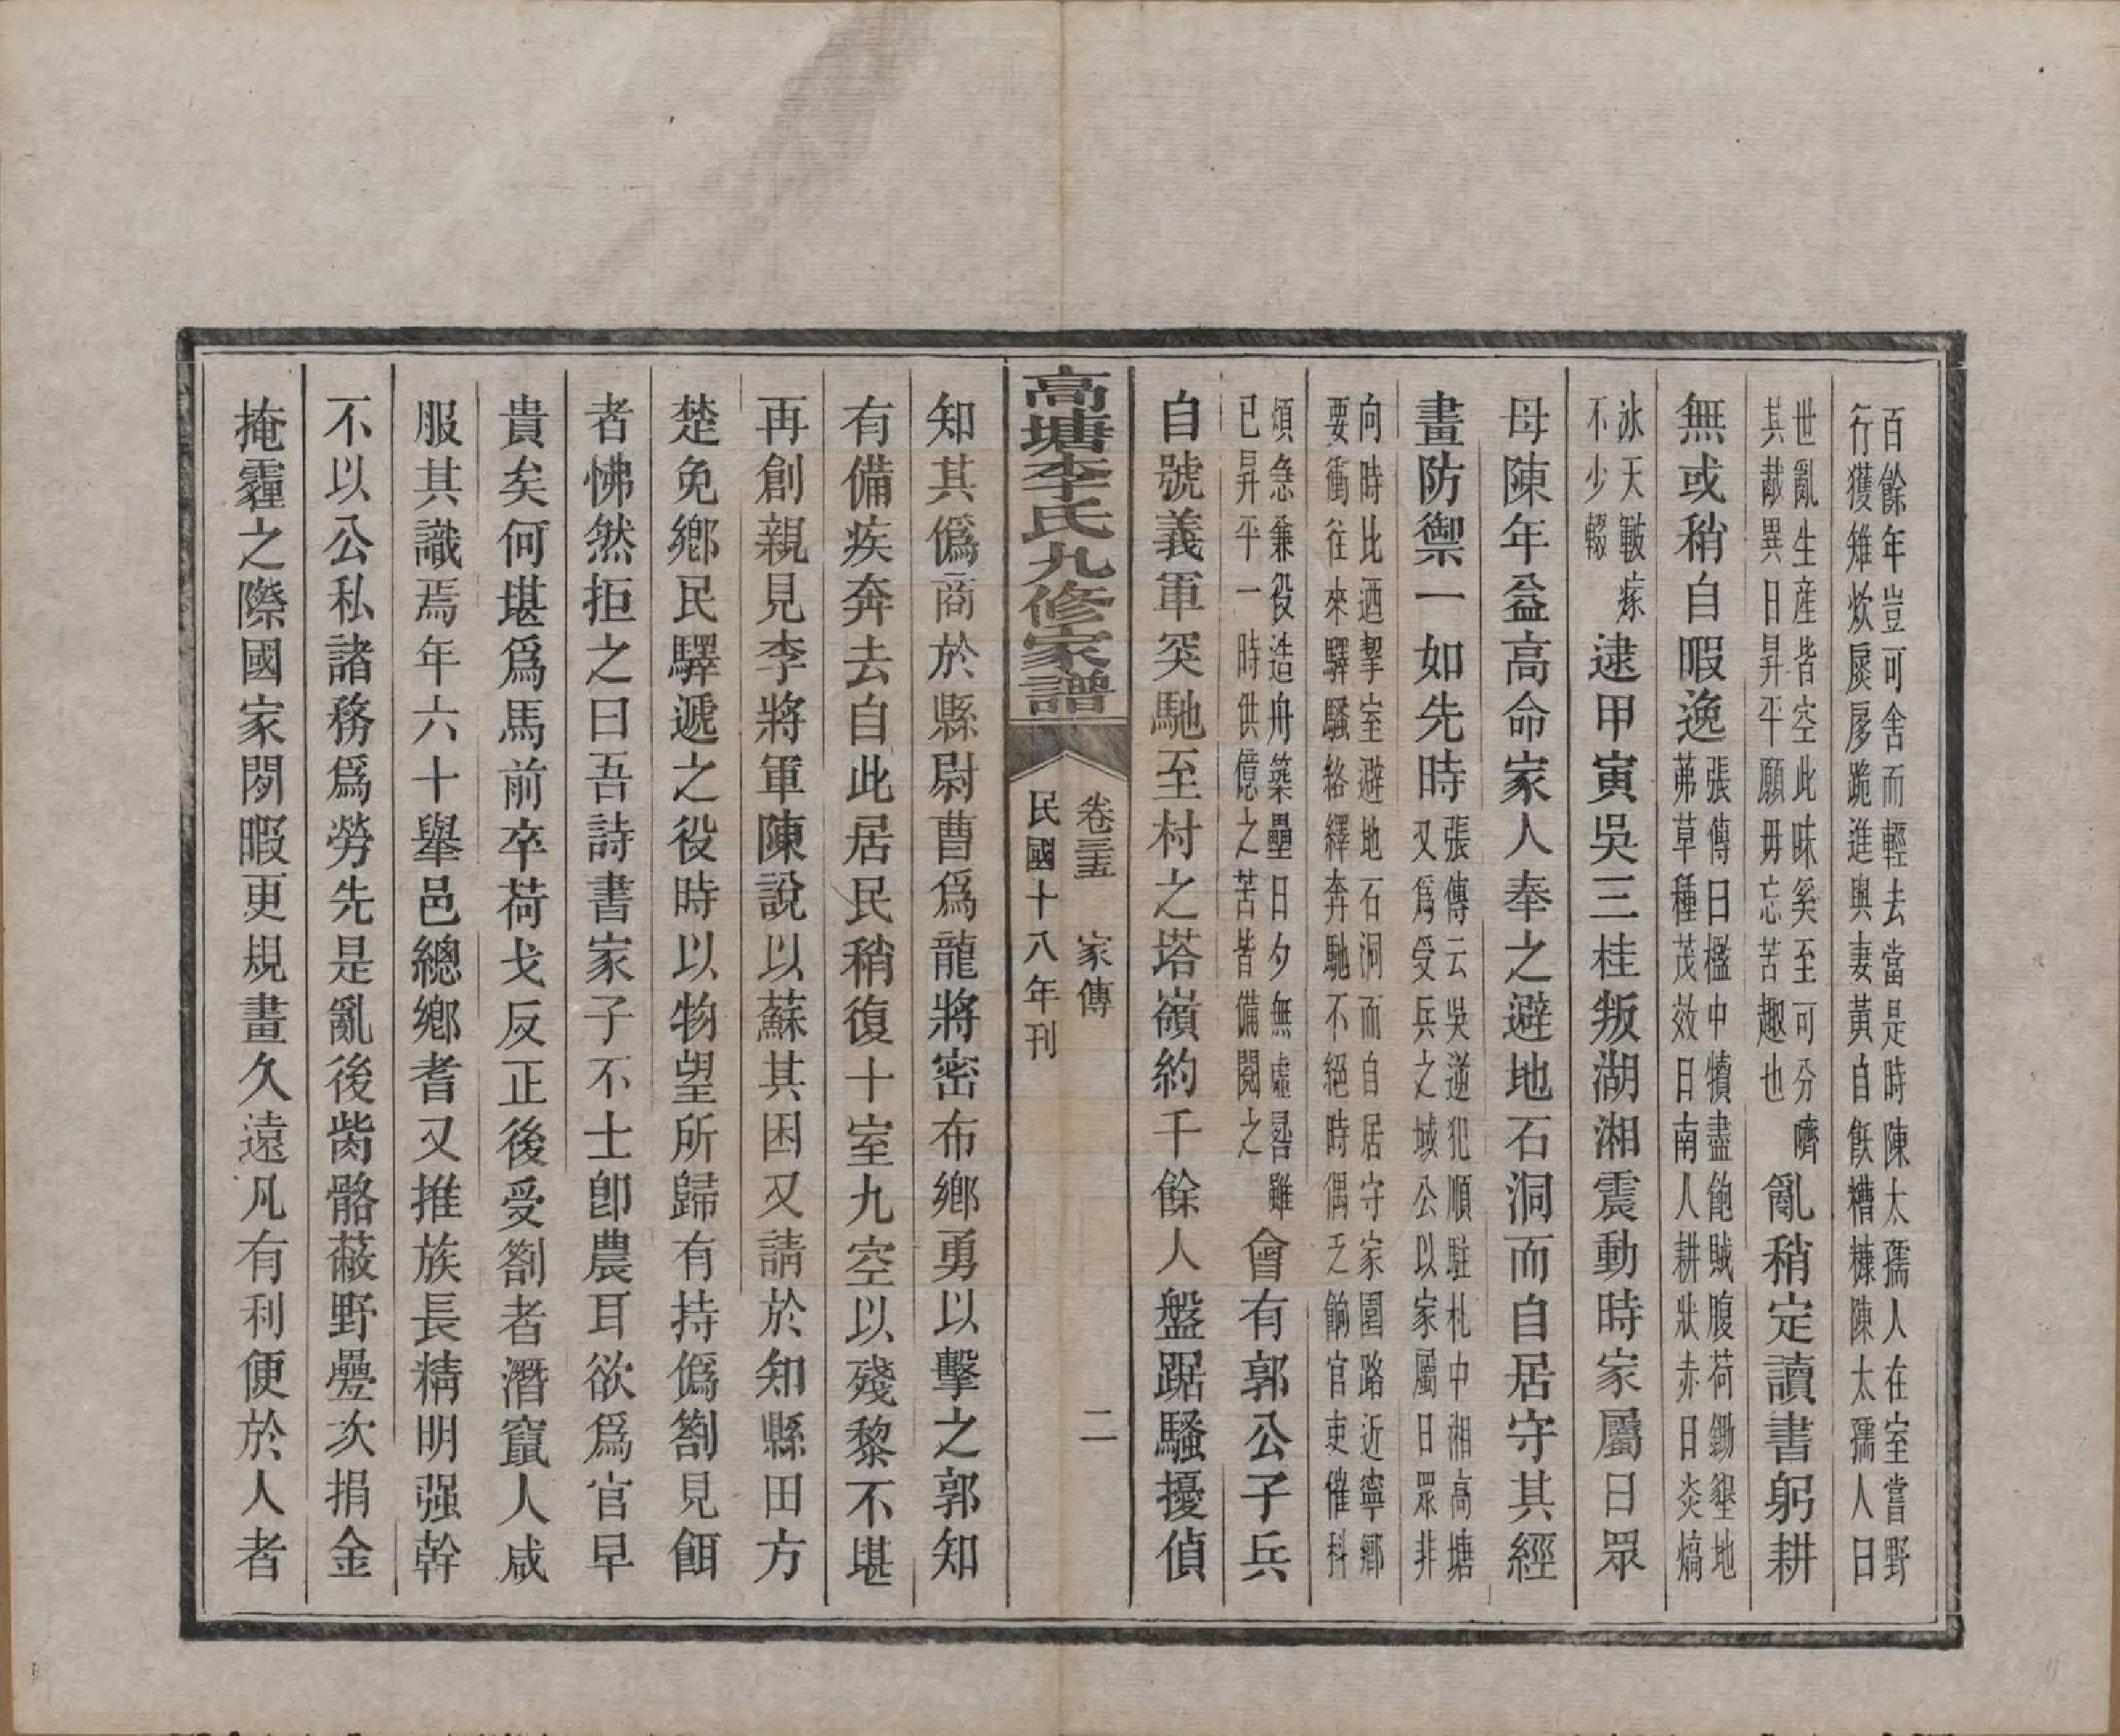 百餘年豈可舍而輕去當是時陳太孺人在室嘗野
行獲雉炊扊扅跪進與妻黃自飫糟糠陳太孺人曰
世亂生産皆空此味奚至可分嚌
其菽異日昇平願毋忘苦趣也
亂稍定讀書躬耕
無或稍自暇逸
張傳曰檻中犢盡飽賊腹荷鋤墾地
茀草種茂效日南人耕狀赤日炎熇
泳天皸瘃
不少輟
逮甲寅吳三桂叛湖湘震動時家屬日眾
母陳年益高命家人奉之避地石洞而自居守其經
畫防禦一如先時
張傳云吳逆犯順駐札中湘高塘
又爲受兵之域公以家屬日眾非
向時比迺挈室避地石洞而自居守家園路近寧鄉
要衝往來驛騷絡繹奔馳不絕時偶乏餉官吏催科
煩急兼役造舟築壘日夕無虛晷雖
已昇平一時供億之苦皆備閱之
會有郭公子兵
自號義軍突馳至村之塔嶺約千餘人盤踞騷擾偵
高塘李氏九修家譜
卷三十五 家傳 二
民國十八年刊
知其僞商於縣尉曹爲龍將密布鄉勇以擊之郭知
有備疾奔去自此居民稍復十室九空以殘黎不堪
再創親見李將軍陳說以蘇其困又請於知縣田方
楚免鄉民驛遞之役時以物望所歸有持僞劄見餌
者怫然拒之曰吾詩書家子不士卽農耳欲爲官早
貴矣何堪爲馬前卒荷戈反正後受劄者潛竄人咸
服其識焉年六十舉邑總鄉耆又推族長精明强幹
不以公私諸務爲勞先是亂後胔骼蔽野疊次捐金
掩霾之際國家閒暇更規畫久遠凡有利便於人者